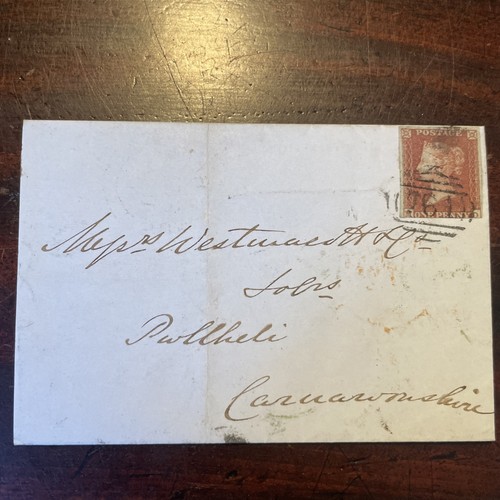 POSTAGE
ONE PENNY
Messrs Westmacott & Co
Solrs
Pwllheli
Carnarvonshire